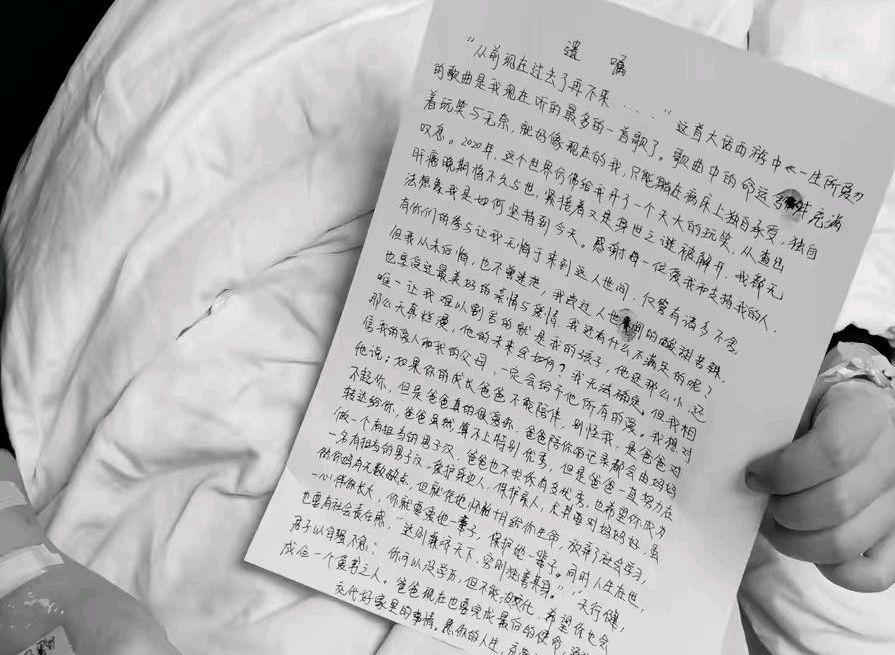 遗嘱
“从前现在过去了再不来……”这首大话西游中《一生所爱》
的歌曲是我现在听的最多的一首歌了。歌曲中的命运多舛充满
着玩笑与无奈,就好像现在的我,只能躺在病床上独自承受,独自
叹息。2020年,这个世界仿佛给我开了一个天大的玩笑,从查出
肝癌晚期将不久与世,紧接着又是身世之谜被解开,我都无
法想象我是如何坚持到今天。感谢每一位爱我和支持我的人,
有你们的参与让我无悔于来到这人世间,仅管有诸多不舍,
但我从未后悔,也不曾迷茫,我尝过人世间的酸甜苦辣,
也享受过最美好的亲情与爱情,我还有什么不满足的呢?
唯一让我难以割舍的就是我的孩子,他还那么小,还
那么天真烂漫,他的未来会如何?我无法确定。但我相
信我的爱人和我的父母,一定会给予他所有的爱。我想对
他说:如果你的成长爸爸不能陪伴,别怪我,是爸爸对
不起你,但是爸爸真的很爱你,爸爸陪你的记录都会由妈妈
转达给你,爸爸虽然算不上特别优秀,但是爸爸一直努力在
做一个有担当的男子汉,爸爸也不求你有多优秀,也希望你成为
一名有担当的男子汉,爱护身边人,保护家人,尤其要对妈妈好,虽
然你妈有无数缺点,但就凭她怀胎十月给你生命,放弃了社会学习,
一心伴你长大,你就要爱她一辈子,保护她一辈子。同时人生在世,
也要有社会责任感,“达则兼济天下,穷则独善其身”,“天行健,
君子以自强不息”你可以没学历,但不能没文化,希望你也会
成为一个爱书之人。爸爸现在也要完成最后的使命,
交代好家里的事情。愿你的人生,